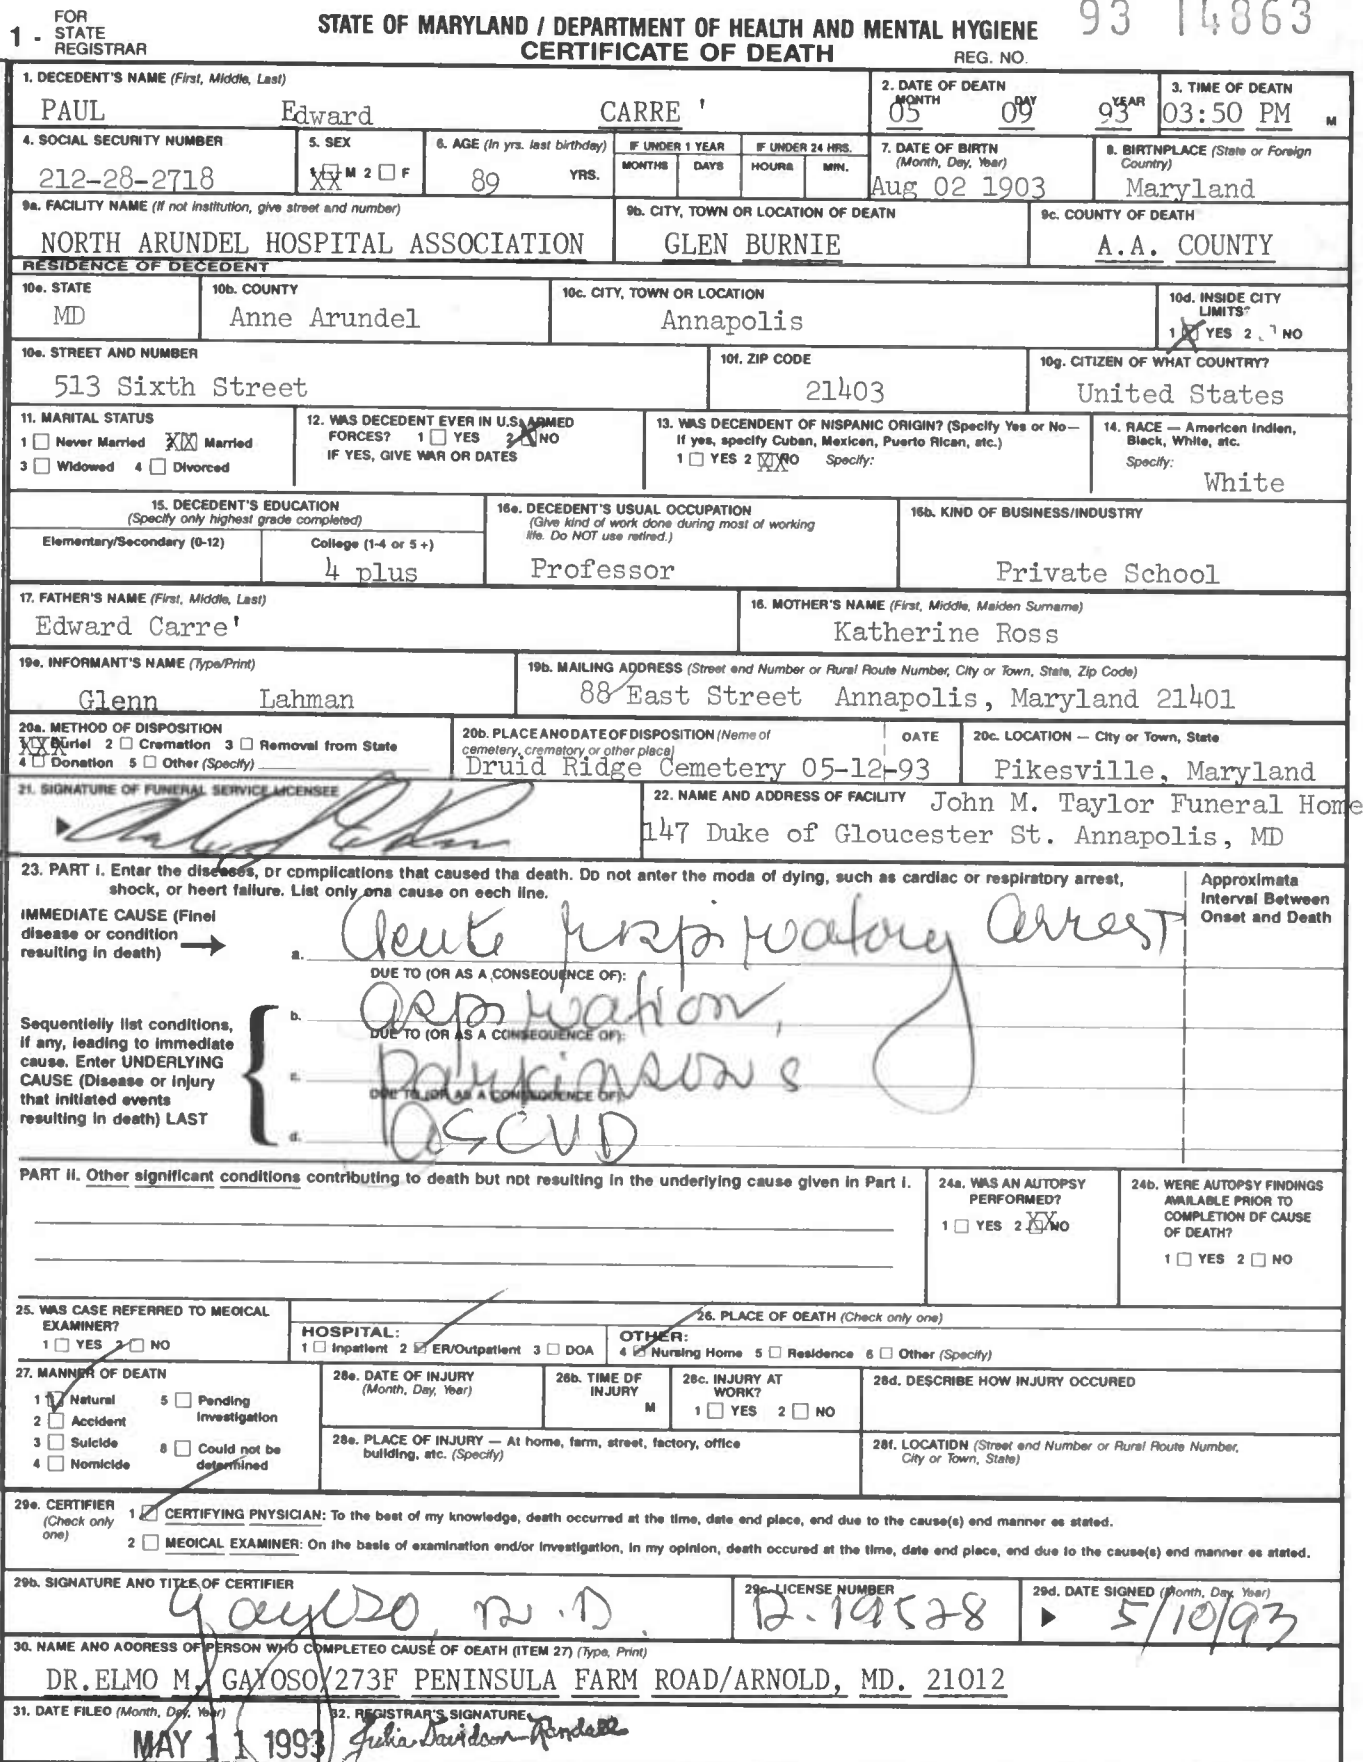 1 - FOR STATE REGISTRAR
STATE OF MARYLAND / DEPARTMENT OF HEALTH AND MENTAL HYGIENE
93 14863
CERTIFICATE OF DEATH
REG. NO.
1. DECEDENT'S NAME (First, Middle, Last)
PAUL Edward CARRE '
2. DATE OF DEATH
MONTH DAY YEAR
05 09 93
3. TIME OF DEATH
03:50 PM M
4. SOCIAL SECURITY NUMBER
212-28-2718
5. SEX
1 XX M 2 ☐ F
6. AGE (In yrs. last birthday)
89 YRS.
IF UNDER 1 YEAR
MONTHS DAYS
IF UNDER 24 HRS.
HOURS MIN.
7. DATE OF BIRTH
(Month, Day, Year)
Aug 02 1903
8. BIRTHPLACE (State or Foreign Country)
Maryland
9a. FACILITY NAME (If not institution, give street and number)
NORTH ARUNDEL HOSPITAL ASSOCIATION
9b. CITY, TOWN OR LOCATION OF DEATH
GLEN BURNIE
9c. COUNTY OF DEATH
A.A. COUNTY
RESIDENCE OF DECEDENT
10a. STATE
MD
10b. COUNTY
Anne Arundel
10c. CITY, TOWN OR LOCATION
Annapolis
10d. INSIDE CITY LIMITS?
1 ☒ YES 2 ☐ NO
10e. STREET AND NUMBER
513 Sixth Street
10f. ZIP CODE
21403
10g. CITIZEN OF WHAT COUNTRY?
United States
11. MARITAL STATUS
1 ☐ Never Married XX Married
3 ☐ Widowed 4 ☐ Divorced
12. WAS DECEDENT EVER IN U.S. ARMED
FORCES? 1 ☐ YES 2 ☒ NO
IF YES, GIVE WAR OR DATES
13. WAS DECENDENT OF HISPANIC ORIGIN? (Specify Yes or No—
If yes, specify Cuban, Mexican, Puerto Rican, etc.)
1 ☐ YES 2 XX NO Specify:
14. RACE — American Indian,
Black, White, etc.
Specify:
White
15. DECEDENT'S EDUCATION
(Specify only highest grade completed)
Elementary/Secondary (0-12)
College (1-4 or 5+)
4 plus
16a. DECEDENT'S USUAL OCCUPATION
(Give kind of work done during most of working
life. Do NOT use retired.)
Professor
16b. KIND OF BUSINESS/INDUSTRY
Private School
17. FATHER'S NAME (First, Middle, Last)
Edward Carre'
18. MOTHER'S NAME (First, Middle, Maiden Surname)
Katherine Ross
19a. INFORMANT'S NAME (Type/Print)
Glenn Lahman
19b. MAILING ADDRESS (Street and Number or Rural Route Number, City or Town, State, Zip Code)
88 East Street Annapolis, Maryland 21401
20a. METHOD OF DISPOSITION
XXX Burial 2 ☐ Cremation 3 ☐ Removal from State
4 ☐ Donation 5 ☐ Other (Specify)
20b. PLACE AND DATE OF DISPOSITION (Name of
cemetery, crematory or other place)
DATE
Druid Ridge Cemetery 05-12-93
20c. LOCATION — City or Town, State
Pikesville, Maryland
21. SIGNATURE OF FUNERAL SERVICE LICENSEE
22. NAME AND ADDRESS OF FACILITY John M. Taylor Funeral Home
147 Duke of Gloucester St. Annapolis, MD
23. PART I. Enter the diseases, or complications that caused the death. Do not enter the mode of dying, such as cardiac or respiratory arrest,
shock, or heart failure. List only one cause on each line.
Approximate
Interval Between
Onset and Death
IMMEDIATE CAUSE (Final
disease or condition
resulting in death)
a. Acute respiratory arrest
DUE TO (OR AS A CONSEQUENCE OF):
b. aspiration,
DUE TO (OR AS A CONSEQUENCE OF):
c. parkinsons
DUE TO (OR AS A CONSEQUENCE OF):
d. ASCVD
Sequentially list conditions,
if any, leading to immediate
cause. Enter UNDERLYING
CAUSE (Disease or injury
that initiated events
resulting in death) LAST
PART II. Other significant conditions contributing to death but not resulting in the underlying cause given in Part I.
24a. WAS AN AUTOPSY
PERFORMED?
1 ☐ YES 2 XX NO
24b. WERE AUTOPSY FINDINGS
AVAILABLE PRIOR TO
COMPLETION OF CAUSE
OF DEATH?
1 ☐ YES 2 ☐ NO
25. WAS CASE REFERRED TO MEDICAL
EXAMINER?
1 ☐ YES 2 ☑ NO
26. PLACE OF DEATH (Check only one)
HOSPITAL:
1 ☐ Inpatient 2 ☑ ER/Outpatient 3 ☐ DOA
OTHER:
4 ☑ Nursing Home 5 ☐ Residence 6 ☐ Other (Specify)
27. MANNER OF DEATH
1 ☑ Natural 5 ☐ Pending Investigation
2 ☐ Accident
3 ☐ Suicide 6 ☐ Could not be determined
4 ☐ Homicide
28a. DATE OF INJURY
(Month, Day, Year)
28b. TIME OF
INJURY
M
28c. INJURY AT
WORK?
1 ☐ YES 2 ☐ NO
28d. DESCRIBE HOW INJURY OCCURED
28e. PLACE OF INJURY — At home, farm, street, factory, office
building, etc. (Specify)
28f. LOCATION (Street and Number or Rural Route Number,
City or Town, State)
29a. CERTIFIER
(Check only
one)
1 ☑ CERTIFYING PHYSICIAN: To the best of my knowledge, death occurred at the time, date and place, and due to the cause(s) and manner as stated.
2 ☐ MEDICAL EXAMINER: On the basis of examination and/or investigation, in my opinion, death occured at the time, date and place, and due to the cause(s) and manner as stated.
29b. SIGNATURE AND TITLE OF CERTIFIER
Gayoso, M.D.
29c. LICENSE NUMBER
D-19528
29d. DATE SIGNED (Month, Day, Year)
5/10/93
30. NAME AND ADDRESS OF PERSON WHO COMPLETED CAUSE OF DEATH (ITEM 27) (Type, Print)
DR.ELMO M. GAYOSO/273F PENINSULA FARM ROAD/ARNOLD, MD. 21012
31. DATE FILED (Month, Day, Year)
MAY 11 1993
32. REGISTRAR'S SIGNATURE
Julia Davidson-Randall